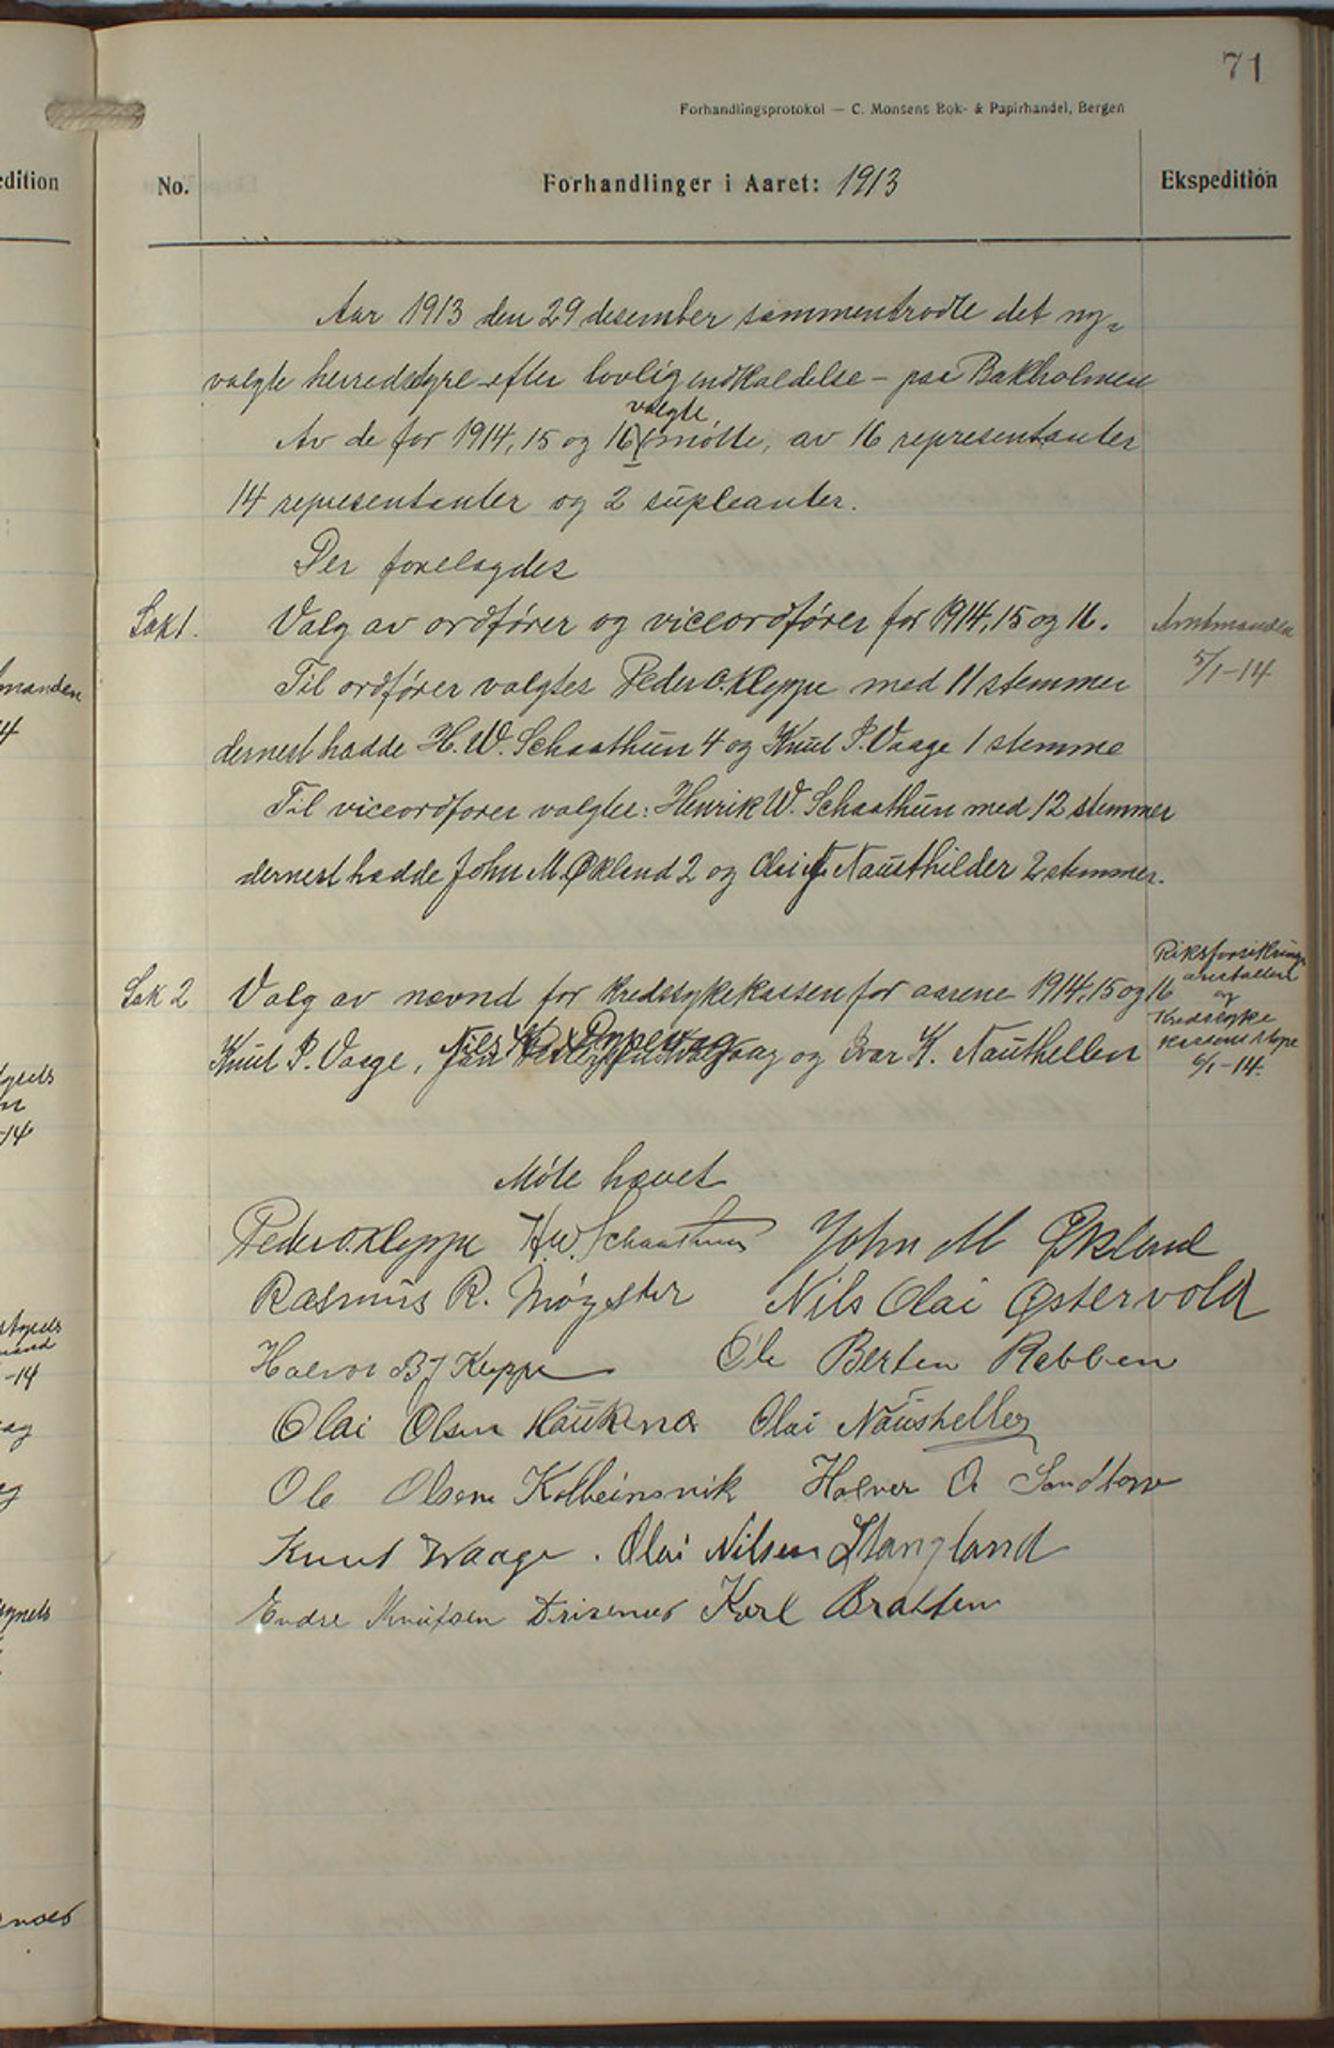 71
Forhandlingsprotokol — C. Monsens Bok- & Papirhandel, Bergen
edition
No.
Forhandlinger i Aaret: 1913
Ekspedition
Aar 1913 den 29 desember sammentrodte det ny-
valgte herredstyre efter lovlig indkaldelse - paa Bakholmen
valgte
Av de for 1914, 15 og 16 møtte, av 16 representanter
14 representanter og 2 supleanter.
Der forelagdes
Sak 1.
Valg av ordfører og viceordfører for 1914, 15 og 16.
Amtmanden
5/1-14
Til ordfører valgtes Peder O. Kleppe med 11 stemmer
dernest hadde H. W. Schaathun 4 og Knut P. Vaage 1 stemme
Til viceordfører valgtes: Henrik W. Schaathun med 12 stemmer
dernest hadde John M. Økland 2 og Olai Nausthilder 2 stemmer.
Sak 2
Valg av nævnd for kredssykekassen for aarene 1914, 15 og 16
Riksforsikrings
anstalten
og
Kredssyke
kassens styre
6/1-14.
Nils
Knut P. Vaage, og Ivar K. Nauthellen
Møte hævet
Peder O. Kleppe H. W. Schaathun John M Økland
Rasmus R. Møgster Nils Olai Østervold
Halvor B J Kleppe Ole Berten Rabben
Olai Olsen Hauknes Olai Naushellen
Ole Olsen Kolbeinsvik Halvor O Sandtorv
Knut Waage. Olai Nilsen Stangland
Endre Knutsen Drisenes Karl Bratten
manden
4
-14
-14